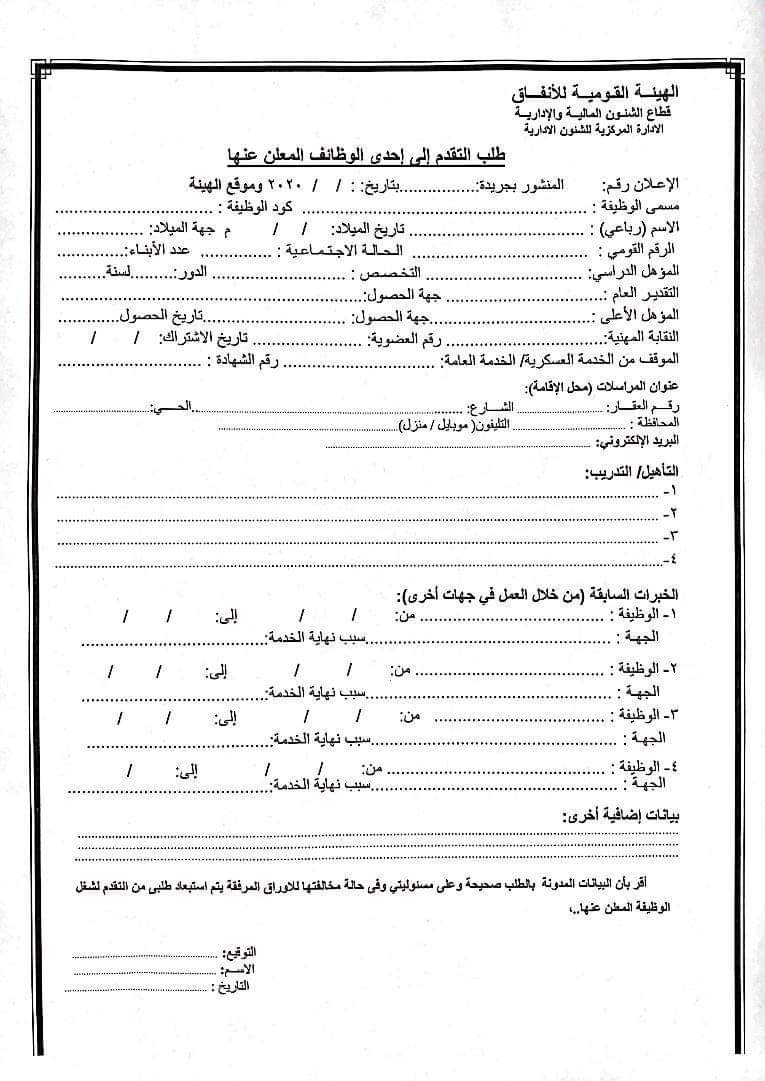 الهيئـــة القـوميـــة للأنفـــاق
قطاع الشئـون الماليـة والإداريـة
الادارة المركزية للشئون الادارية
طلب التقدم إلى إحدى الوظائف المعلن عنها
الإعـلان رقـم: المنشور بجريدة:................بتاريخ: : / / ٢٠٢٠ وموقع الهيئة
مسمى الوظيفة : ................................ كود الوظيفة : ................................
الاسم (رباعي) : ................................ تاريخ الميلاد: / / م جهة الميلاد: ................
الرقم القومي : ................................ الحـالـة الاجـتمـاعيـة : ................ عدد الأبناء:................
المؤهل الدراسي:................................ التخـصـص : ................ الدور:.........لسنة..........
التقديـر العام : ................................ جهة الحصول:................................
المؤهل الأعلى :................................جهة الحصول: ................تاريخ الحصول.............
النقابة المهنية:................................ رقم العضوية: ................ تاريخ الاشتراك: / /
الموقف من الخدمة العسكرية/ الخدمة العامة: ................................ رقم الشهادة : ................
عنوان المراسلات (محل الإقامة):
رقـم العقـار: ................ الشارع: ................................الحـــي:................
المحافظة : ................................التليفون( موبايل / منزل)................................
البريد الإلكتروني: ................................
التأهيل/ التدريب:
١- ................................
٢- ................................
٣- ................................
٤-................................
الخبرات السابقة (من خلال العمل في جهات أخرى):
١- الوظيفة : ................................ من: / / إلى: / /
الجهة : ................................سبب نهاية الخدمة:................................
٢- الوظيفة : ................................ من: / / إلى: / /
الجهة : ................................سبب نهاية الخدمة:................................
٣- الوظيفة : ................................ من: / / إلى: / /
الجهة : ................................سبب نهاية الخدمة:................................
٤- الوظيفة : ................................ من: / / إلى: /
الجهـة : ................................سبب نهاية الخدمة:................................
بيانات إضافية أخرى:
................................
................................
................................
أقر بأن البيانات المدونة بالطلب صحيحة وعلى مسئوليتي وفى حالة مخالفتها للاوراق المرفقة يتم استبعاد طلبى من التقدم لشغل
الوظيفة المعلن عنها..،
التوقيع: ................................
الاســم: ................................
التاريخ : ................................